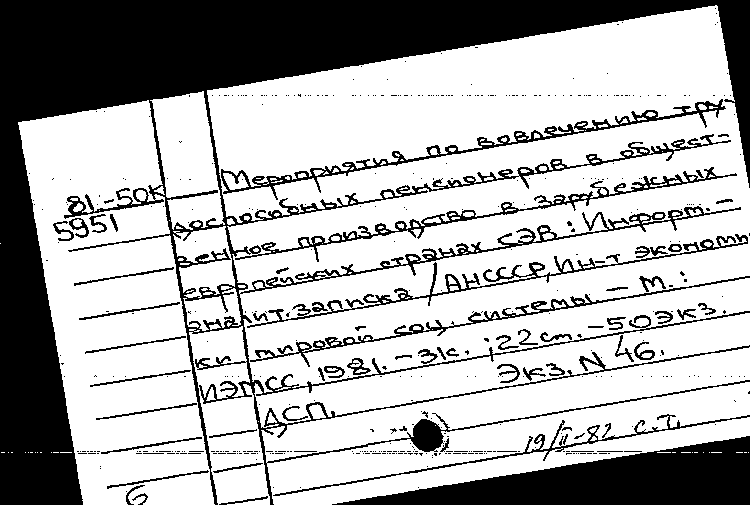 Мероприятия по вовлечению тру-
81.-50К
5951
доспособных пенсионеров в общест-
венное производство в зарубежных
европейских странах СЭВ: Информ.-
аналит. записка / АНСССР, Ин-т экономи
ки мировой соц. системы. - М.:
ИЭМСС, 1981. - 31с. ; 22 см. - 50 экз.
Экз. N 46.
ДСП.
19/II-82 С.Т.
6